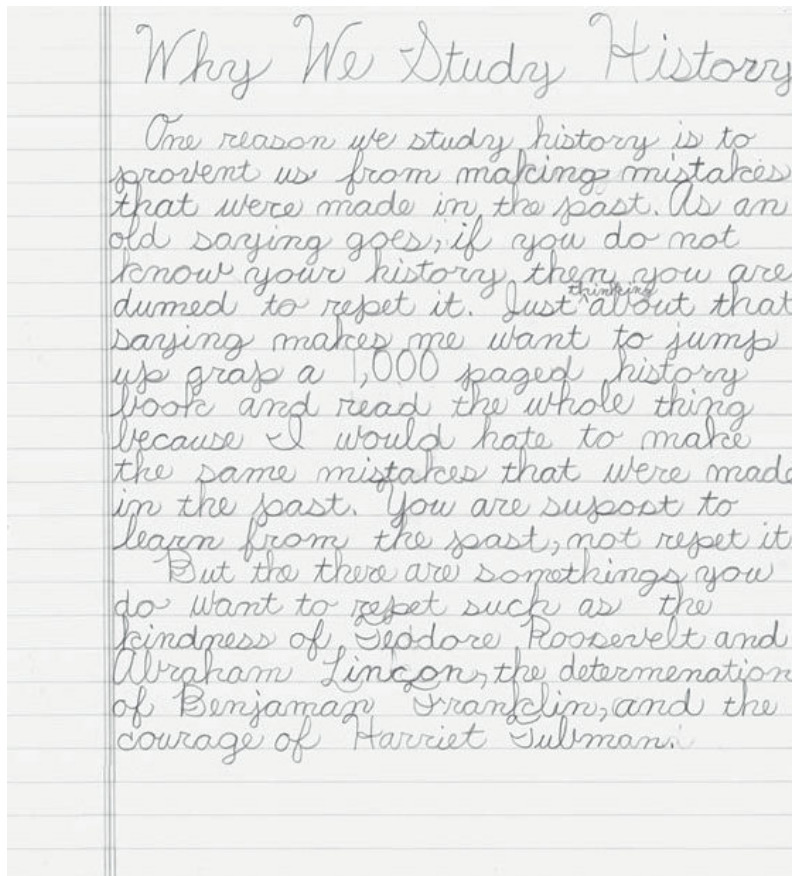 Why We Study History
One reason we study history is to
provent us from making mistakes
that were made in the past. As an
old saying goes, if you do not
know your history then you are
dumed to repet it. Just thinking about that
saying makes me want to jump
up grap a 1,000 paged history
book and read the whole thing
because I would hate to make
the same mistakes that were made
in the past. You are supost to
learn from the past, not repet it
But the there are somethings you
do want to repet such as the
kindness of Teodore Roosevelt and
Abraham Lincon, the determenation
of Benjaman Franklin, and the
courage of Harriet Tubman.